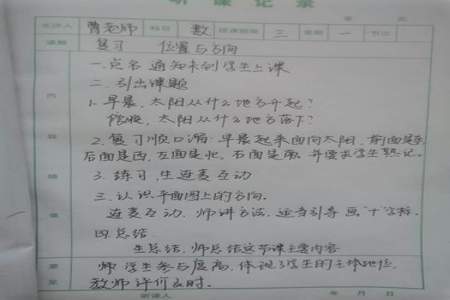 听课记录
年 月 日
授课人 曾老师 科目 数 授课班级 三 星期 一 节次
课题 复习 位置与方向
一.点名 通知未到学生上课
二.引出课题
1.早晨,太阳从什么地方升起?
傍晚,太阳从什么地方落下?
2.复习顺口溜:早晨起来面向太阳,前面是东
后面是西,左面是北,右面是南,并要求学生熟记。
3.练习,生连麦互动
三.认识平面图上的方向。
连麦互动,师讲方法,适当引导画“十”字标。
四.总结
生总结,师总结这节课主要内容
师 学生参与度高,体现了学生的主体地位,
教师评价及时。
听课人 年 月 日